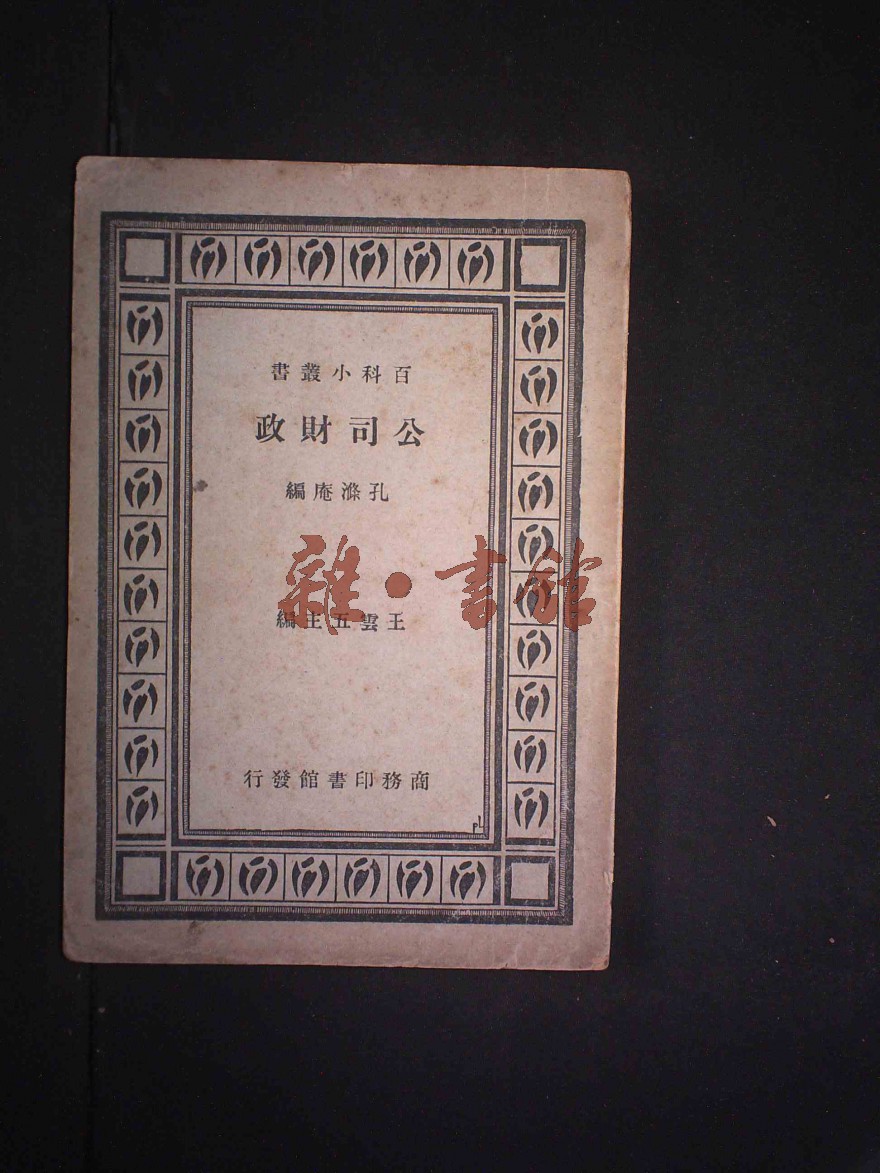 百科小叢書
公司財政
孔滌庵編
雜·書館
王雲五主編
商務印書館發行